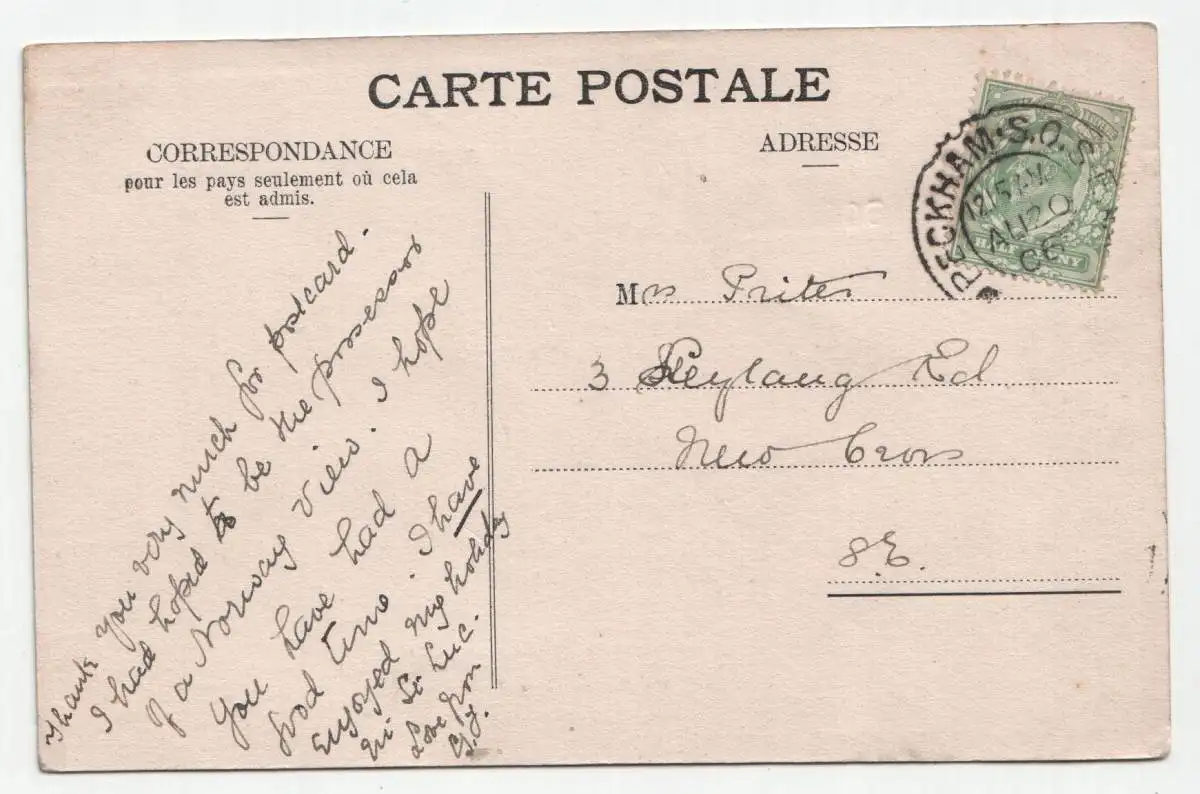 CARTE POSTALE
CORRESPONDANCE
pour les pays seulement où cela
est admis.
ADRESSE
PECKHAM·S.O.S.E
12/15AM
AU20
06
HALF PENNY
Mrs
3 Geylang Rd
New Cross
S.E.
Thank you very much for postcard.
I had hoped to be the possessor
of a Norway view. I hope
you have had a
good time. I have
enjoyed my holiday
in St Luc.
Love from